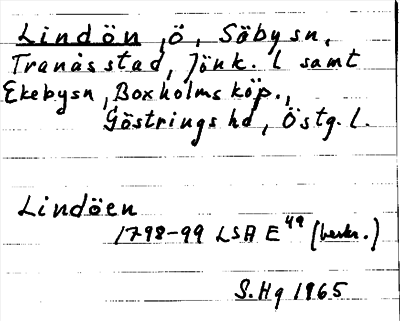 Lindön, ö, Säby sn,
Tranås stad, Jönk. l samt
Ekebysn, Boxholms köp.,
Göstrings hd, Östg. l.
Lindöen
1798-99 LSA E49 (beskr.)
S. Hg 1965